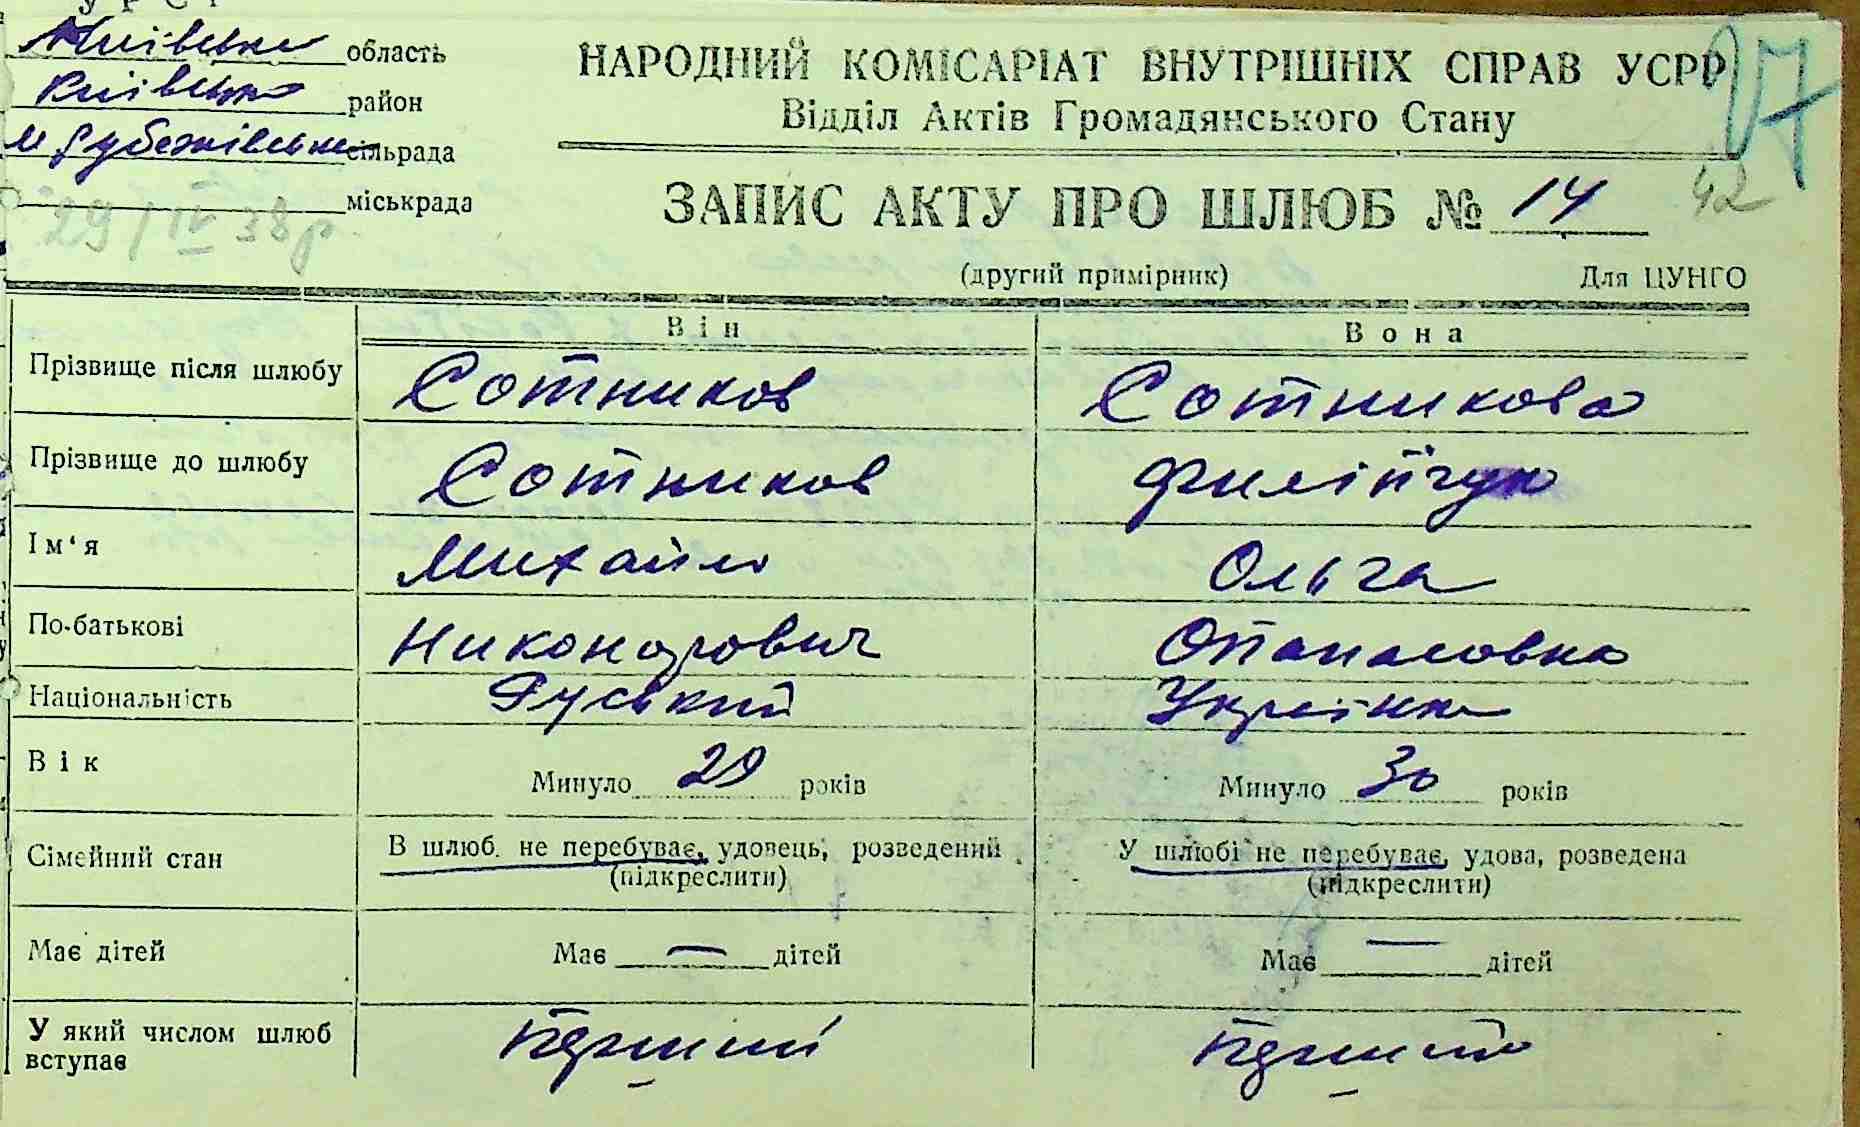 УРСР
Київська область
Київський район
М Рубежівська сільрада
міськрада
29/IV 38 р
НАРОДНИЙ КОМІСАРІАТ ВНУТРІШНІХ СПРАВ УСРР
Відділ Актів Громадянського Стану
ЗАПИС АКТУ ПРО ШЛЮБ № 14
42
(другий примірник) Для ЦУНГО
Він Вона
Прізвище після шлюбу Сотников Сотникова
Прізвище до шлюбу Сотников Филіпчук
Ім‘я Михайло Ольга
По-батькові Никонорович Опанасовна
Національність Руський Українка
Вік Минуло 29 років Минуло 30 років
Сімейний стан В шлюб. не перебуває, удовець, розведений У шлюбі не перебуває, удова, розведена
(підкреслити) (підкреслити)
Має дітей Має — дітей Має — дітей
У який числом шлюб
вступає Перший Перший